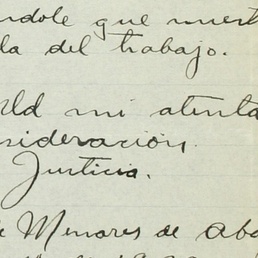 ndole que muest
la del trabajo.
Ud mi atenta
sideración.
Justicia.
e Menores de Aba